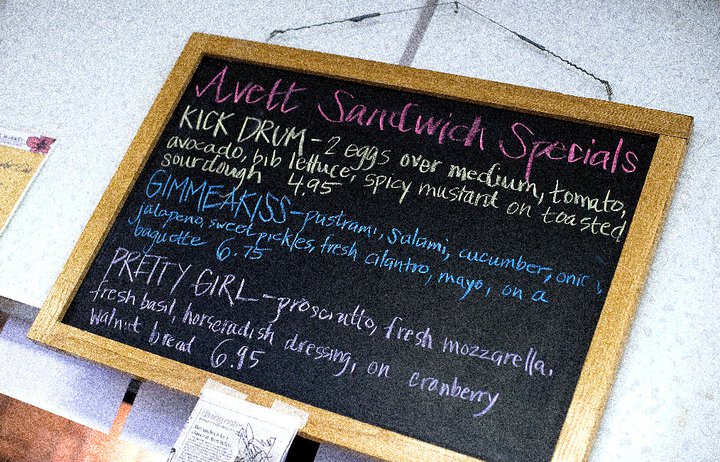 Avett Sandwich Specials
KICK DRUM - 2 eggs over medium, tomato,
avocado, bib lettuce, spicy mustard on toasted
sourdough 4.95
GIMMEAKISS - pastrami, salami, cucumber, onion,
jalapeno, sweet pickles, fresh cilantro, mayo, on a
baguette 6.75
PRETTY GIRL - prosciutto, fresh mozzarella,
fresh basil, horseradish dressing, on cranberry
walnut bread 6.95